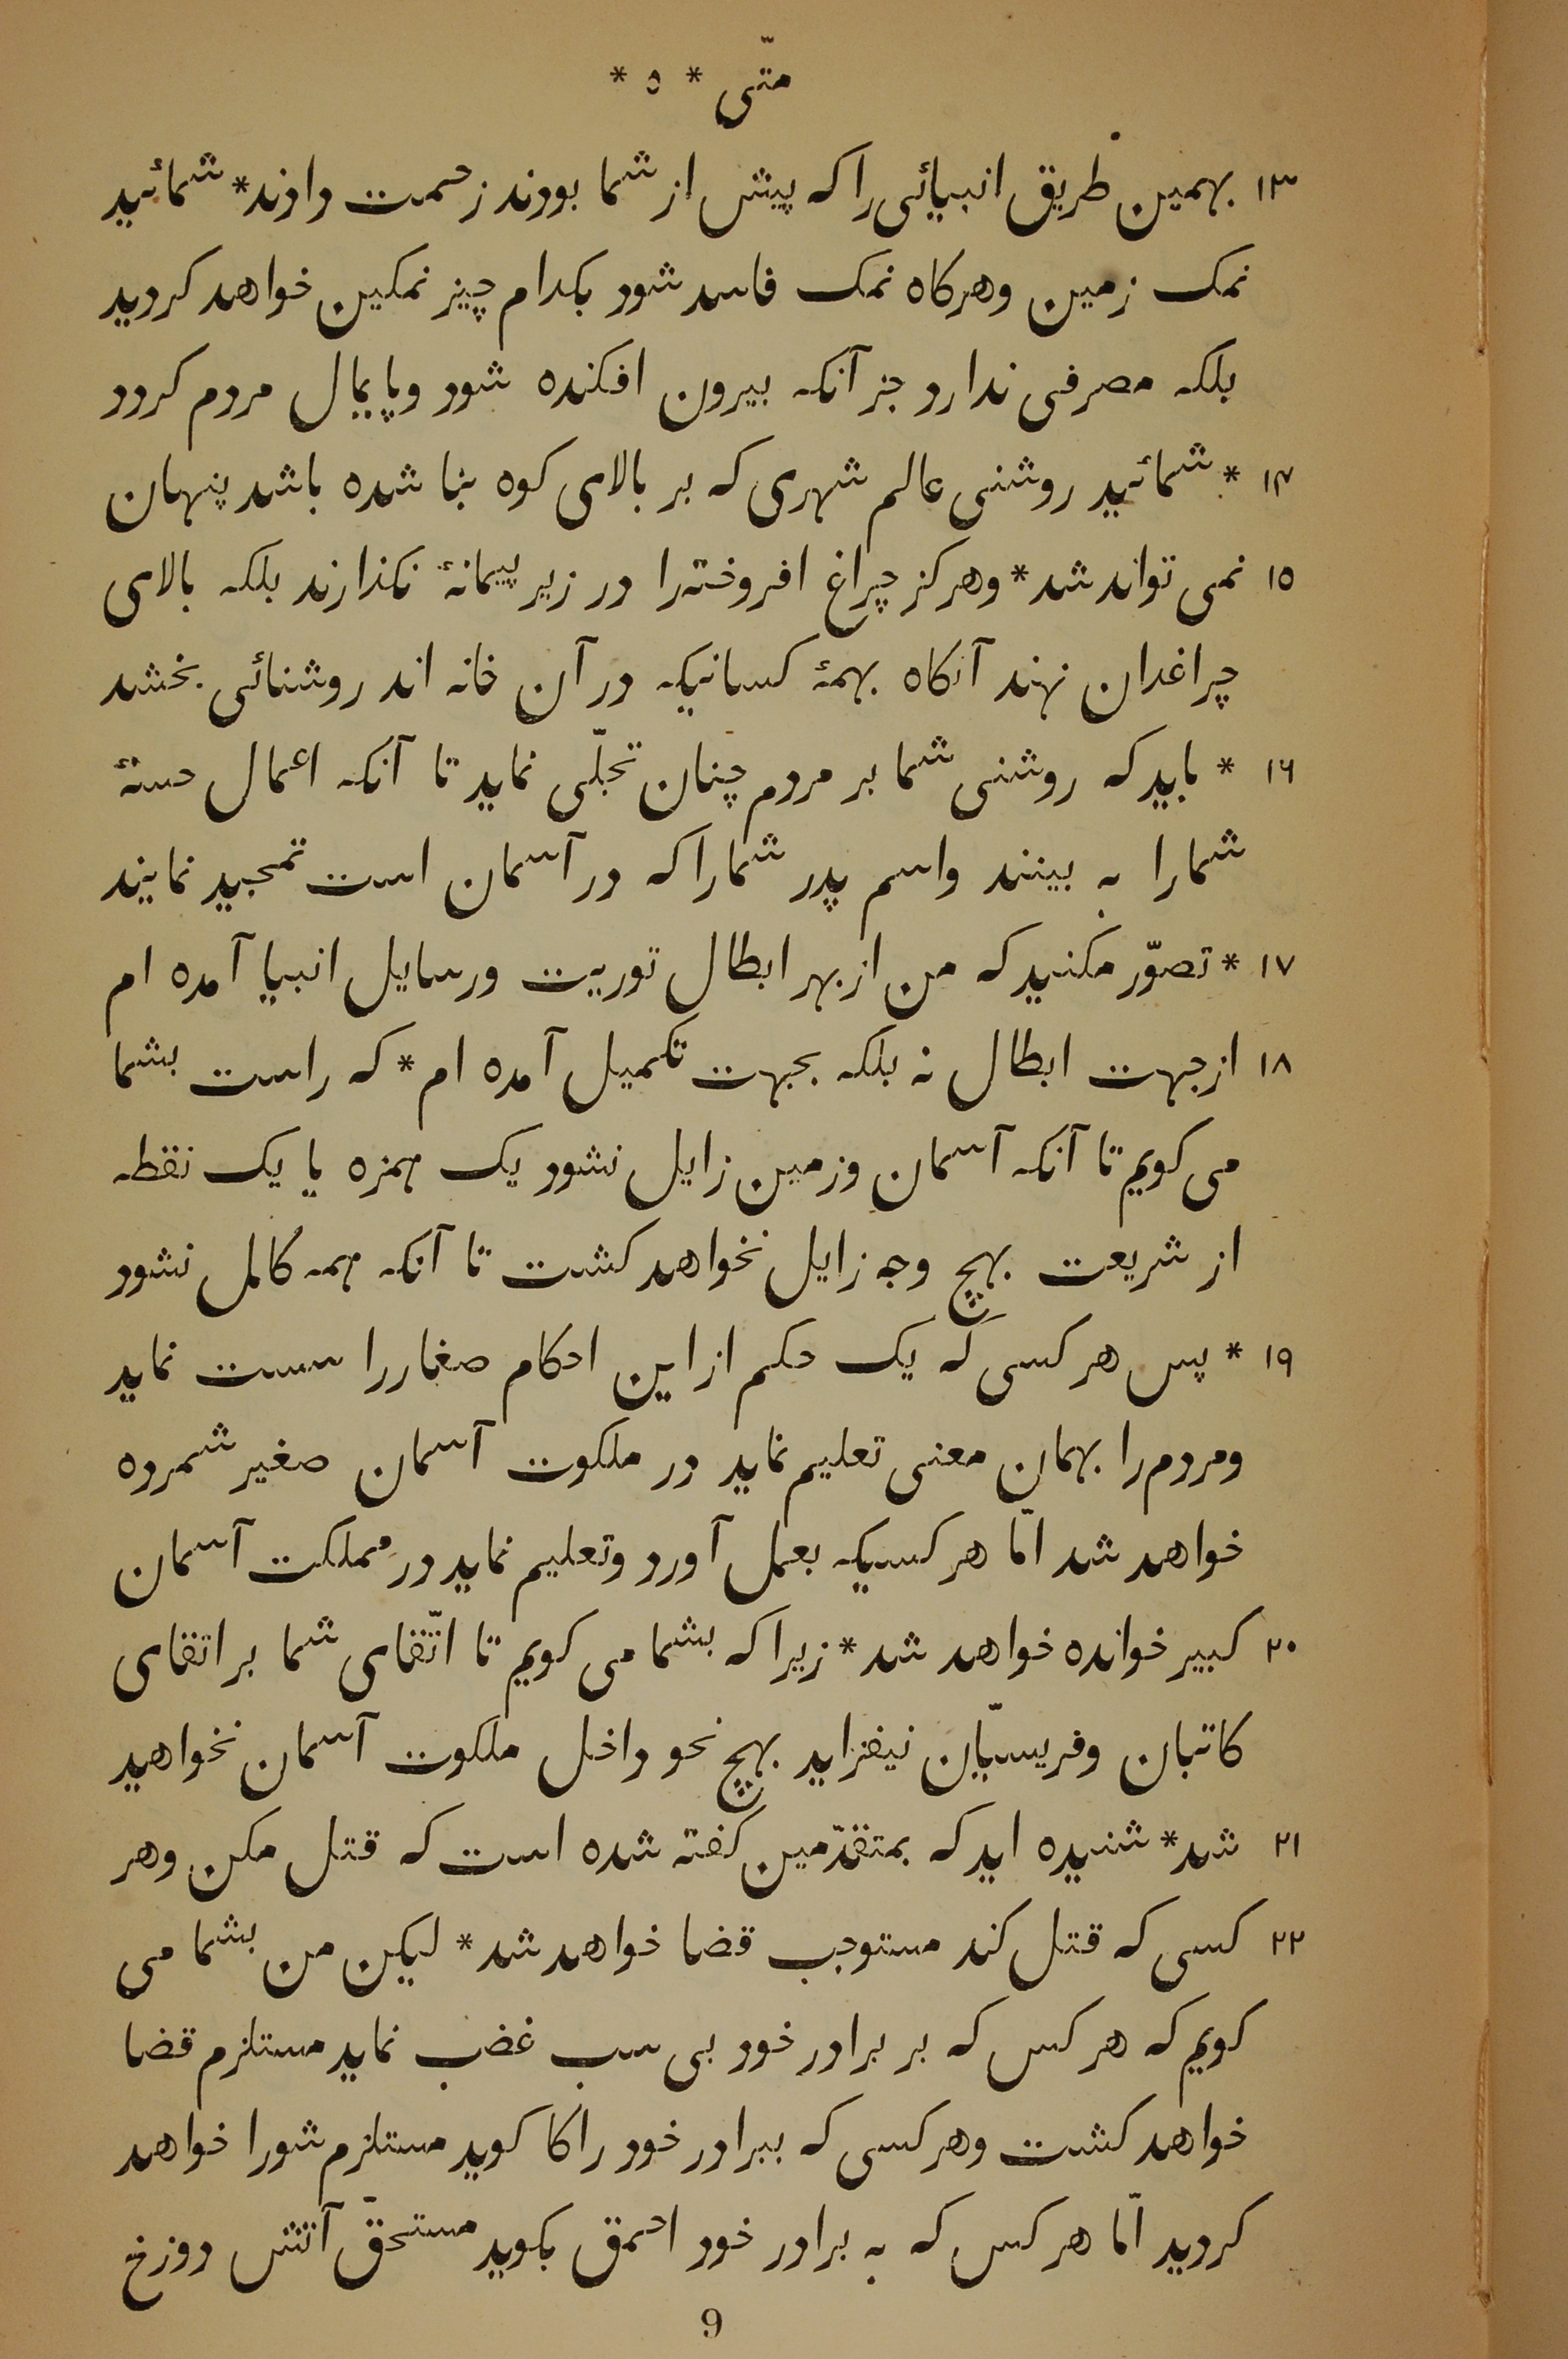 متّی * ٥ *
١٣ بهمین طریق انبیائی را که پیش از شما بودند زحمت دادند * شمائید
نمک زمین وهرکاه نمک فاسد شود بکدام چیز نمکین خواهد کردید
بلکه مصرفی ندارد جز آنکه بیرون افکنده شود وپایمال مردم کردد
١۴ * شمائید روشنی عالم شهری که بر بالای کوه بنا شده باشد پنهان
١٥ نمی تواند شد * وهرکز چراغ افروخته را در زیر پیمانهٔ نکذارند بلکه بالای
چراغدان نهند آنکاه بهمهٔ کسانیکه در آن خانه اند روشنائی بخشد
١٦ * باید که روشنی شما بر مردم چنان تجلّی نماید تا آنکه اعمال حسنهٔ
شمارا به بینند واسم پدر شمارا که در آسمان است تمجید نمایند
١٧ * تصوّر مکنید که من از بهر ابطال توریت ورسایل انبیا آمده ام
١٨ از جهت ابطال نه بلکه بجهت تکمیل آمده ام * که راست بشما
می کویم تا آنکه آسمان وزمین زایل نشود یک همزه یا یک نقطه
از شریعت بهیچ وجه زایل نخواهد کشت تا آنکه همه کامل نشود
١٩ * پس هر کسی که یک حکم از این احکام صغار را سست نماید
ومردم را بهمان معنی تعلیم نماید در ملکوت آسمان صغیر شمرده
خواهد شد امّا هر کسیکه بعمل آورد وتعلیم نماید در مملکت آسمان
٢٠ کبیر خوانده خواهد شد * زیرا که بشما می کویم تا اتّقای شما بر اتقای
کاتبان وفریسّیان نیفزاید بهیچ نحو داخل ملکوت آسمان نخواهید
٢١ شد * شنیده اید که بمتقدّمین کفته شده است که قتل مکن وهر
٢٢ کسی که قتل کند مستوجب قضا خواهد شد * لیکن من بشما می
کویم که هر کس که بر برادر خود بی سبب غضب نماید مستلزم قضا
خواهد کشت وهر کسی که ببرادر خود راکا کوید مستلزم شورا خواهد
کردید امّا هر کس که به برادر خود احمق بکوید مستحقّ آتش دوزخ
9